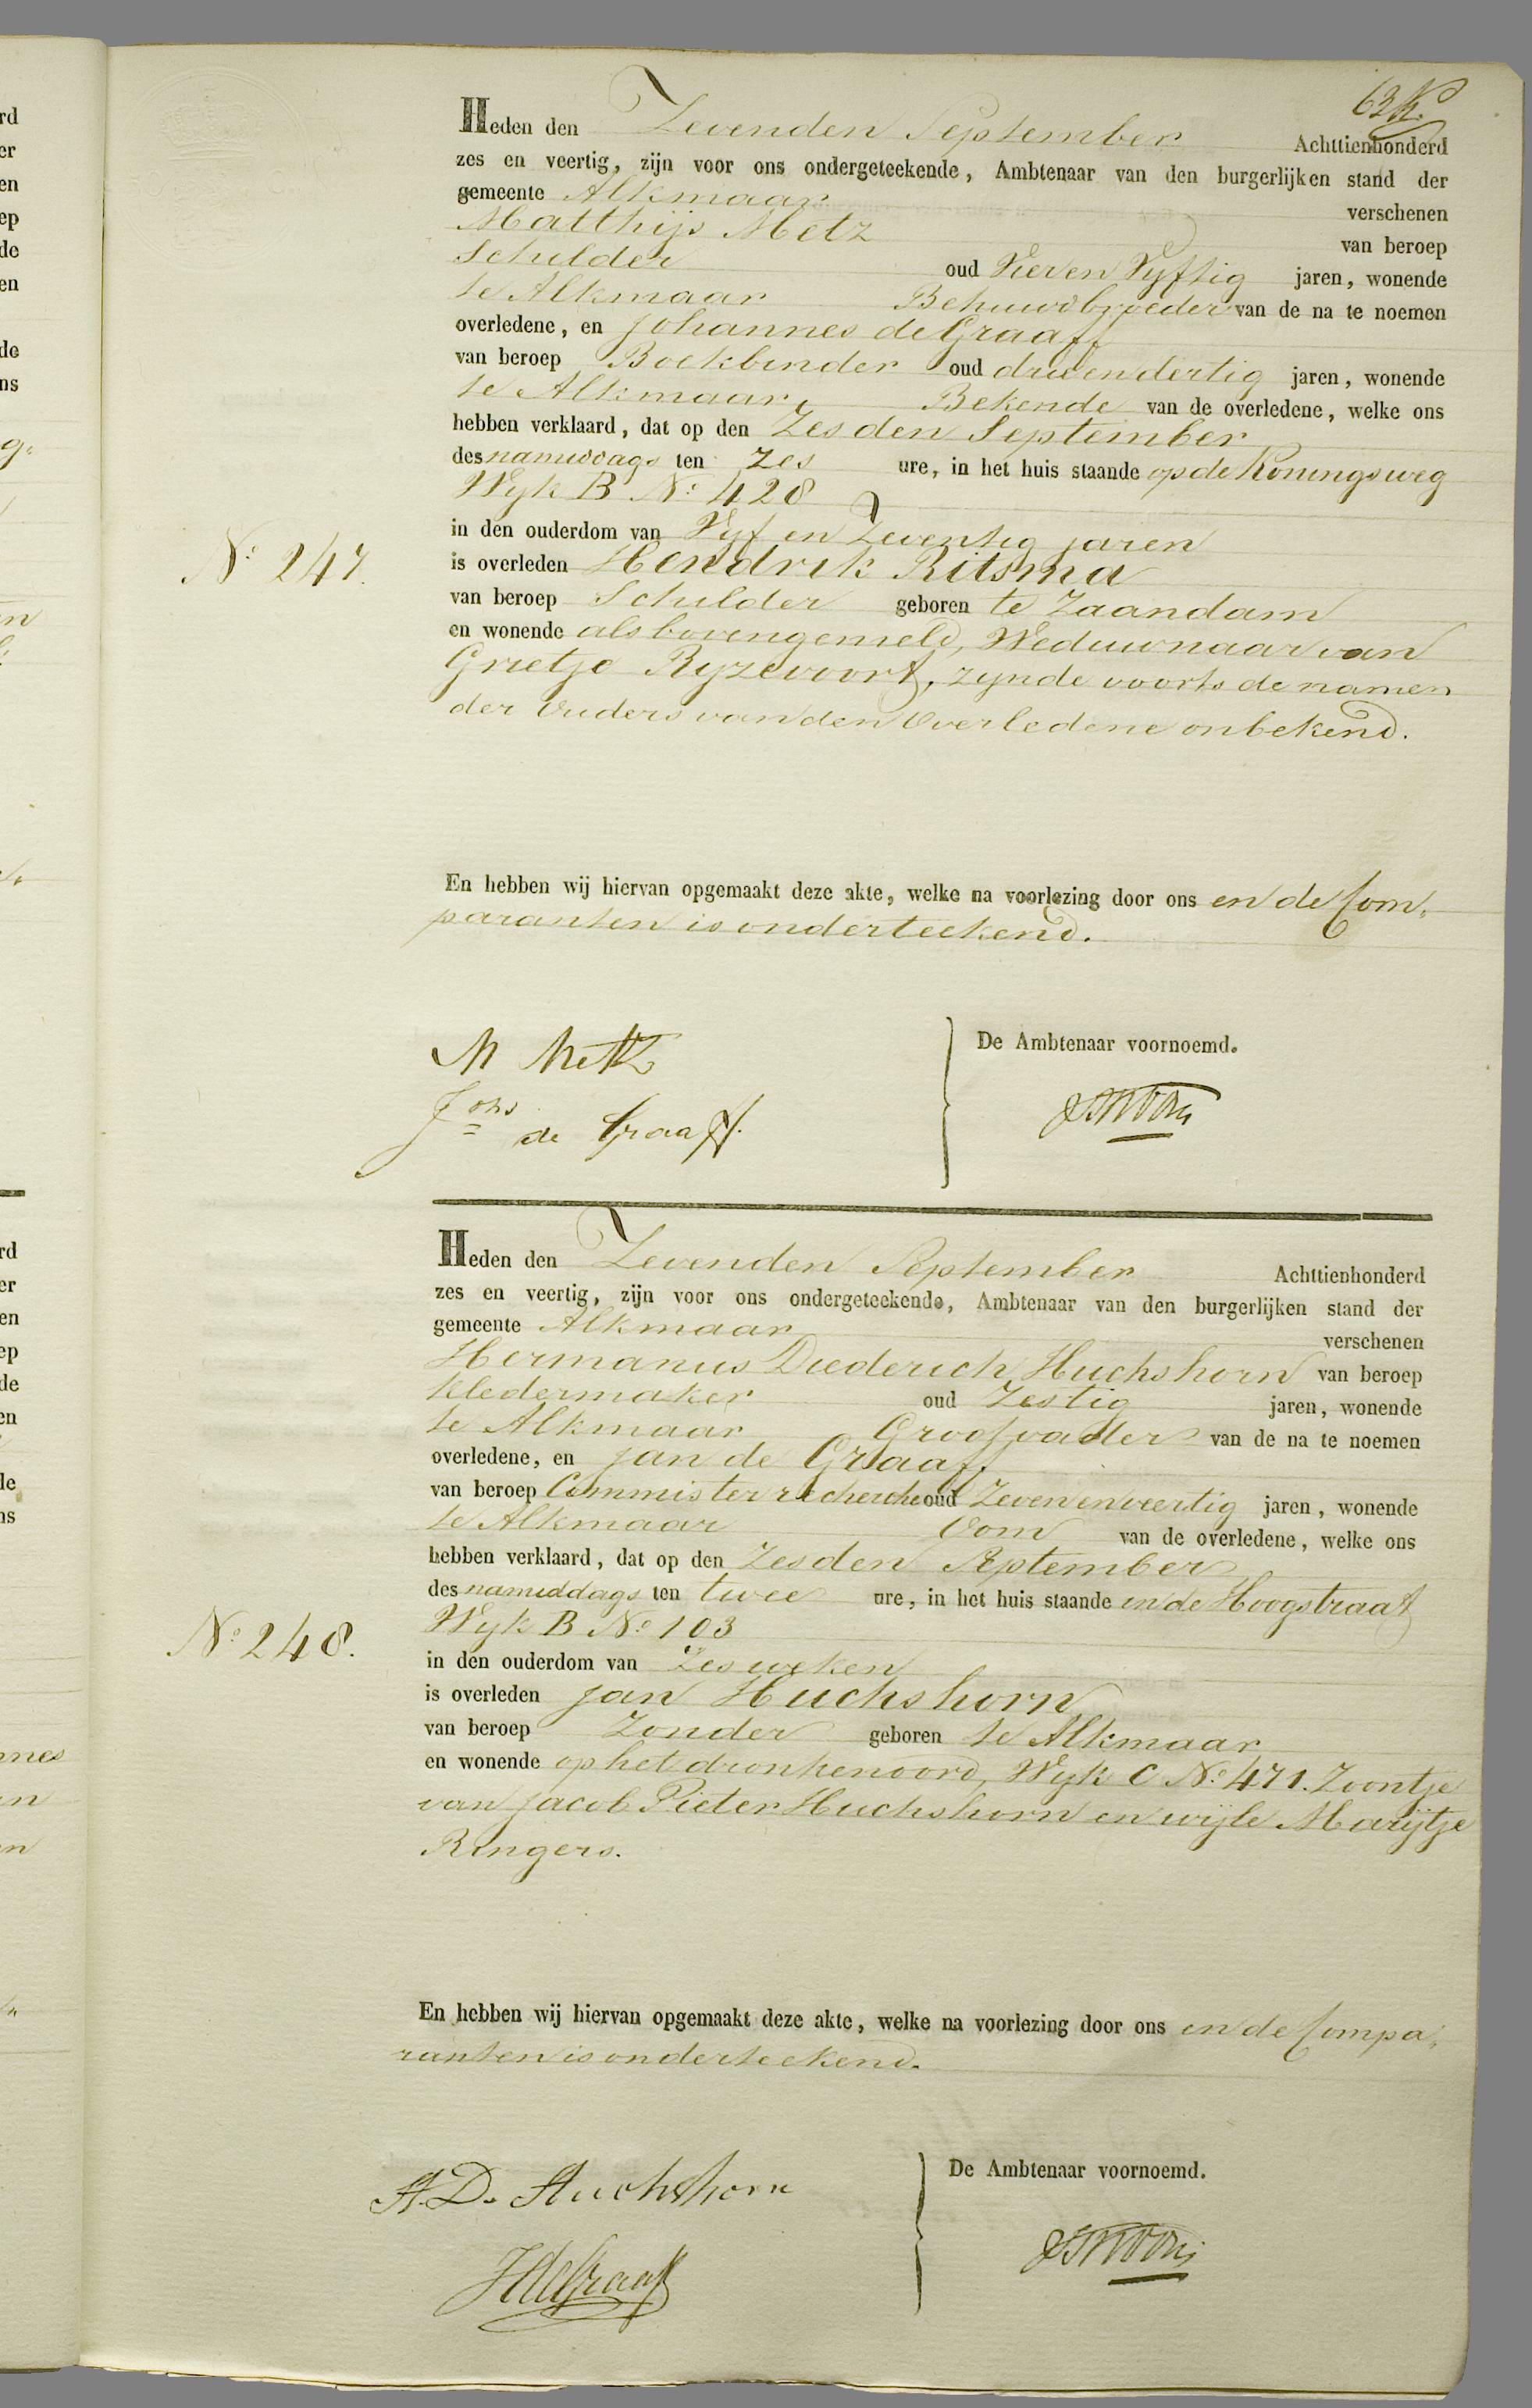 63
Heden den Zevenden September Achttienhonderd
zes en veertig, zijn voor ons ondergeteekende, Ambtenaar van den burgerlijken stand der
gemeente Alkmaar verschenen
Matthijs Metz van beroep
Schilder oud Vier en Vyftig jaren, wonende
te Alkmaar Behuwdbroeder van de na te noemen
overledene, en Johannes de Graaff
van beroep Boekbinder oud drie en dertig jaren, wonende
te Alkmaar, Bekende van de overledene, welke ons
hebben verklaard, dat op den Zesden September
des namiddags ten Zes ure, in het huis staande op de Koningsweg
Wyk B No: 428
in den ouderdom van Vyf en Zeventig jaren
No: 247.
is overleden Hendrik Ritsma
van beroep Schilder geboren te Zaandam
en wonende als bovengemeld, Weduwnaar van
Grietje Ryzevoort, zynde voorts de namen
der Ouders van den Overledene onbekend.
En hebben wij hiervan opgemaakt deze akte, welke na voorlezing door ons en de Com-
paranten is onderteekend.
De Ambtenaar voornoemd.
M Metz
Johs de Graaff.
Heden den Zevenden September Achttienhonderd
zes en veertig, zijn voor ons ondergeteekende, Ambtenaar van den burgerlijken stand der
gemeente Alkmaar verschenen
Hermanus Diederich Huchshorn van beroep
Kledermaker oud Zestig jaren, wonende
te Alkmaar Grootvader van de na te noemen
overledene, en Jan de Graaf,
van beroep Commis ter recherche oud Zeven en veertig jaren, wonende
te Alkmaar Oom van de overledene, welke ons
hebben verklaard, dat op den Zesden September
des namiddags ten twee ure, in het huis staande in de Hoogstraat
Wyk B No: 103
No: 248.
in den ouderdom van Zes weken
is overleden Jan Huchshorn
van beroep Zonder geboren te Alkmaar
en wonende op het dronkenoord, Wyk C No: 471. Zoontje
van Jacob Pieter Huchshorn en wijle Marijtje
Ringers.
En hebben wij hiervan opgemaakt deze akte, welke na voorlezing door ons en de Compa-
ranten is onderteekend.
De Ambtenaar voornoemd.
H. D. Huchshorn
J de Graaf